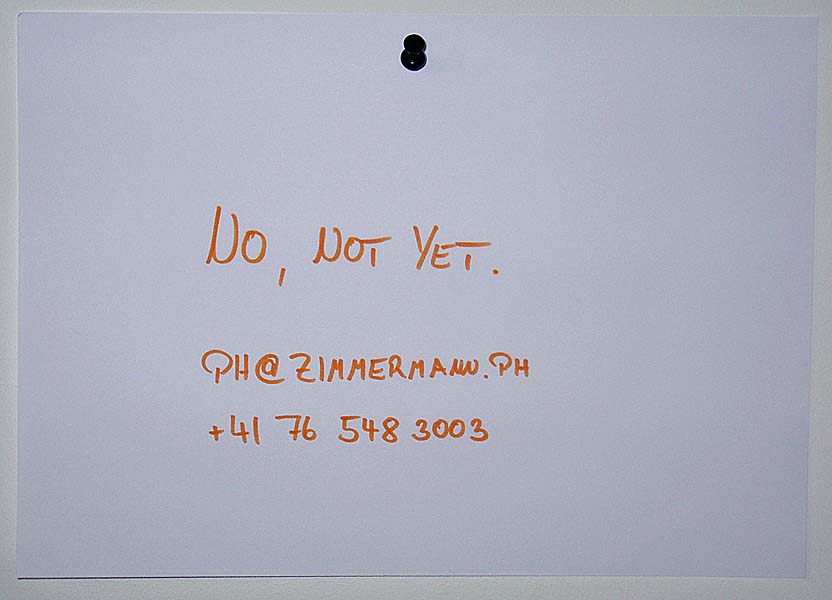 NO, NOT YET.
PH@ZIMMERMANN.PH
+41 76 548 3003